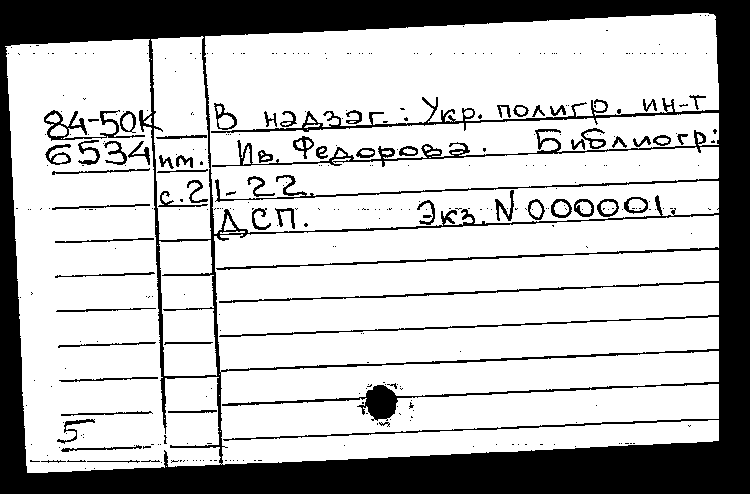 84-50К В надзаг.: Укр. полигр. ин-т
6534 им. Ив. Федорова. Библиогр.:
с.21-22.
ДСП. Экз. N 000001.
5